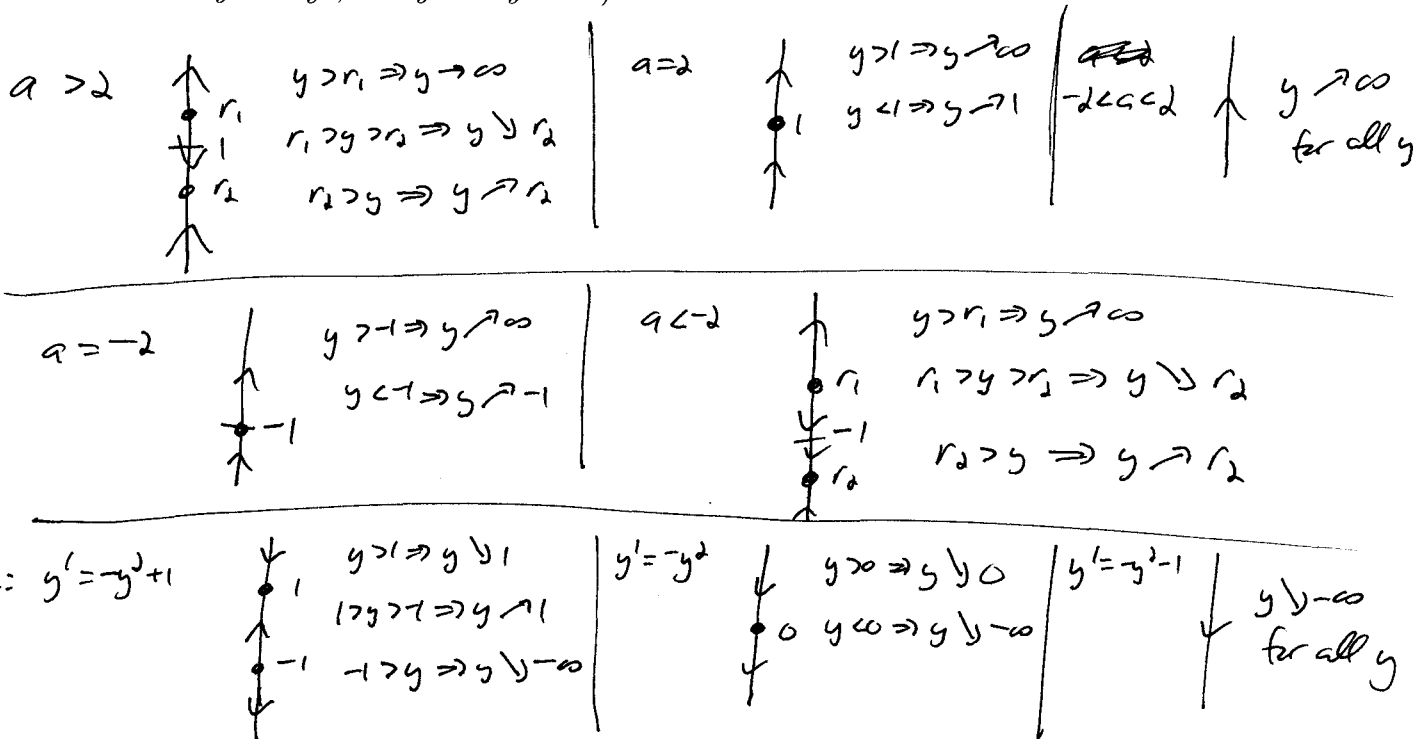 a > 2
r₁
1
r₂
y > r₁ ⇒ y → ∞
r₁ > y > r₂ ⇒ y ↘ r₂
r₂ > y ⇒ y ↗ r₂
a = 2
1
y > 1 ⇒ y ↗ ∞
y < 1 ⇒ y ↗ 1
-2 < a < 2
y ↗ ∞
for all y
a = -2
-1
y > -1 ⇒ y ↗ ∞
y < -1 ⇒ y ↗ -1
a < -2
r₁
-1
r₂
y > r₁ ⇒ y ↗ ∞
r₁ > y > r₂ ⇒ y ↘ r₂
r₂ > y ⇒ y ↗ r₂
: y' = -y² + 1
1
-1
y > 1 ⇒ y ↘ 1
1 > y > -1 ⇒ y ↗ 1
-1 > y ⇒ y ↘ -∞
y' = -y²
0
y > 0 ⇒ y ↘ 0
y < 0 ⇒ y ↘ -∞
y' = -y² - 1
y ↘ -∞
for all y